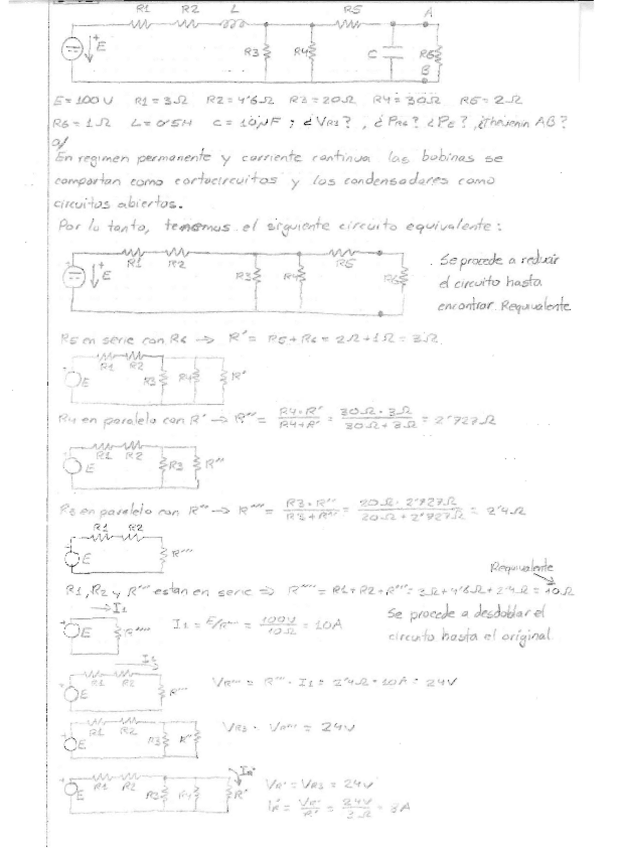 R1 R2 L R5 A
E R3 R4 C R6
B
E = 100V R1 = 3Ω R2 = 4'6Ω R3 = 20Ω R4 = 30Ω R5 = 2Ω
R6 = 1Ω L = 0'5H C = 10µF ; ¿VR3? , ¿PR6? ¿PE? , ¿Thévenin AB?
a/
En regimen permanente y corriente continua las bobinas se
comportan como cortocircuitos y los condensadores como
circuitos abiertos.
Por lo tanto, tenemos el siguiente circuito equivalente:
R1 R2 R5
E R3 R4 R6
Se procede a reducir
el circuito hasta
encontrar Requivalente
R5 en serie con R6 → R' = R5 + R6 = 2Ω + 1Ω = 3Ω
R1 R2
E R3 R4 R'
R4 en paralelo con R' → R'' = R4·R' / R4+R' = 30Ω·3Ω / 30Ω+3Ω = 2'727Ω
R1 R2
E R3 R''
R3 en paralelo con R'' → R''' = R3·R'' / R3+R'' = 20Ω·2'727Ω / 20Ω+2'727Ω = 2'4Ω
R1 R2
E R'''
Requivalente
R1, R2 y R''' estan en serie ⇒ R'''' = R1+R2+R''' = 3Ω+4'6Ω+2'4Ω = 10Ω
I1
E R''''
I1 = E/R'''' = 100V / 10Ω = 10A
Se procede a desdoblar el
circuito hasta el original
I1
R1 R2
E R'''
VR''' = R'''·I1 = 2'4Ω·10A = 24V
R1 R2
E R3 R''
VR3 = VR''' = 24V
R1 R2 IR'
E R3 R4 R'
VR' = VR3 = 24V
IR' = VR' / R' = 24V / 3Ω = 8A